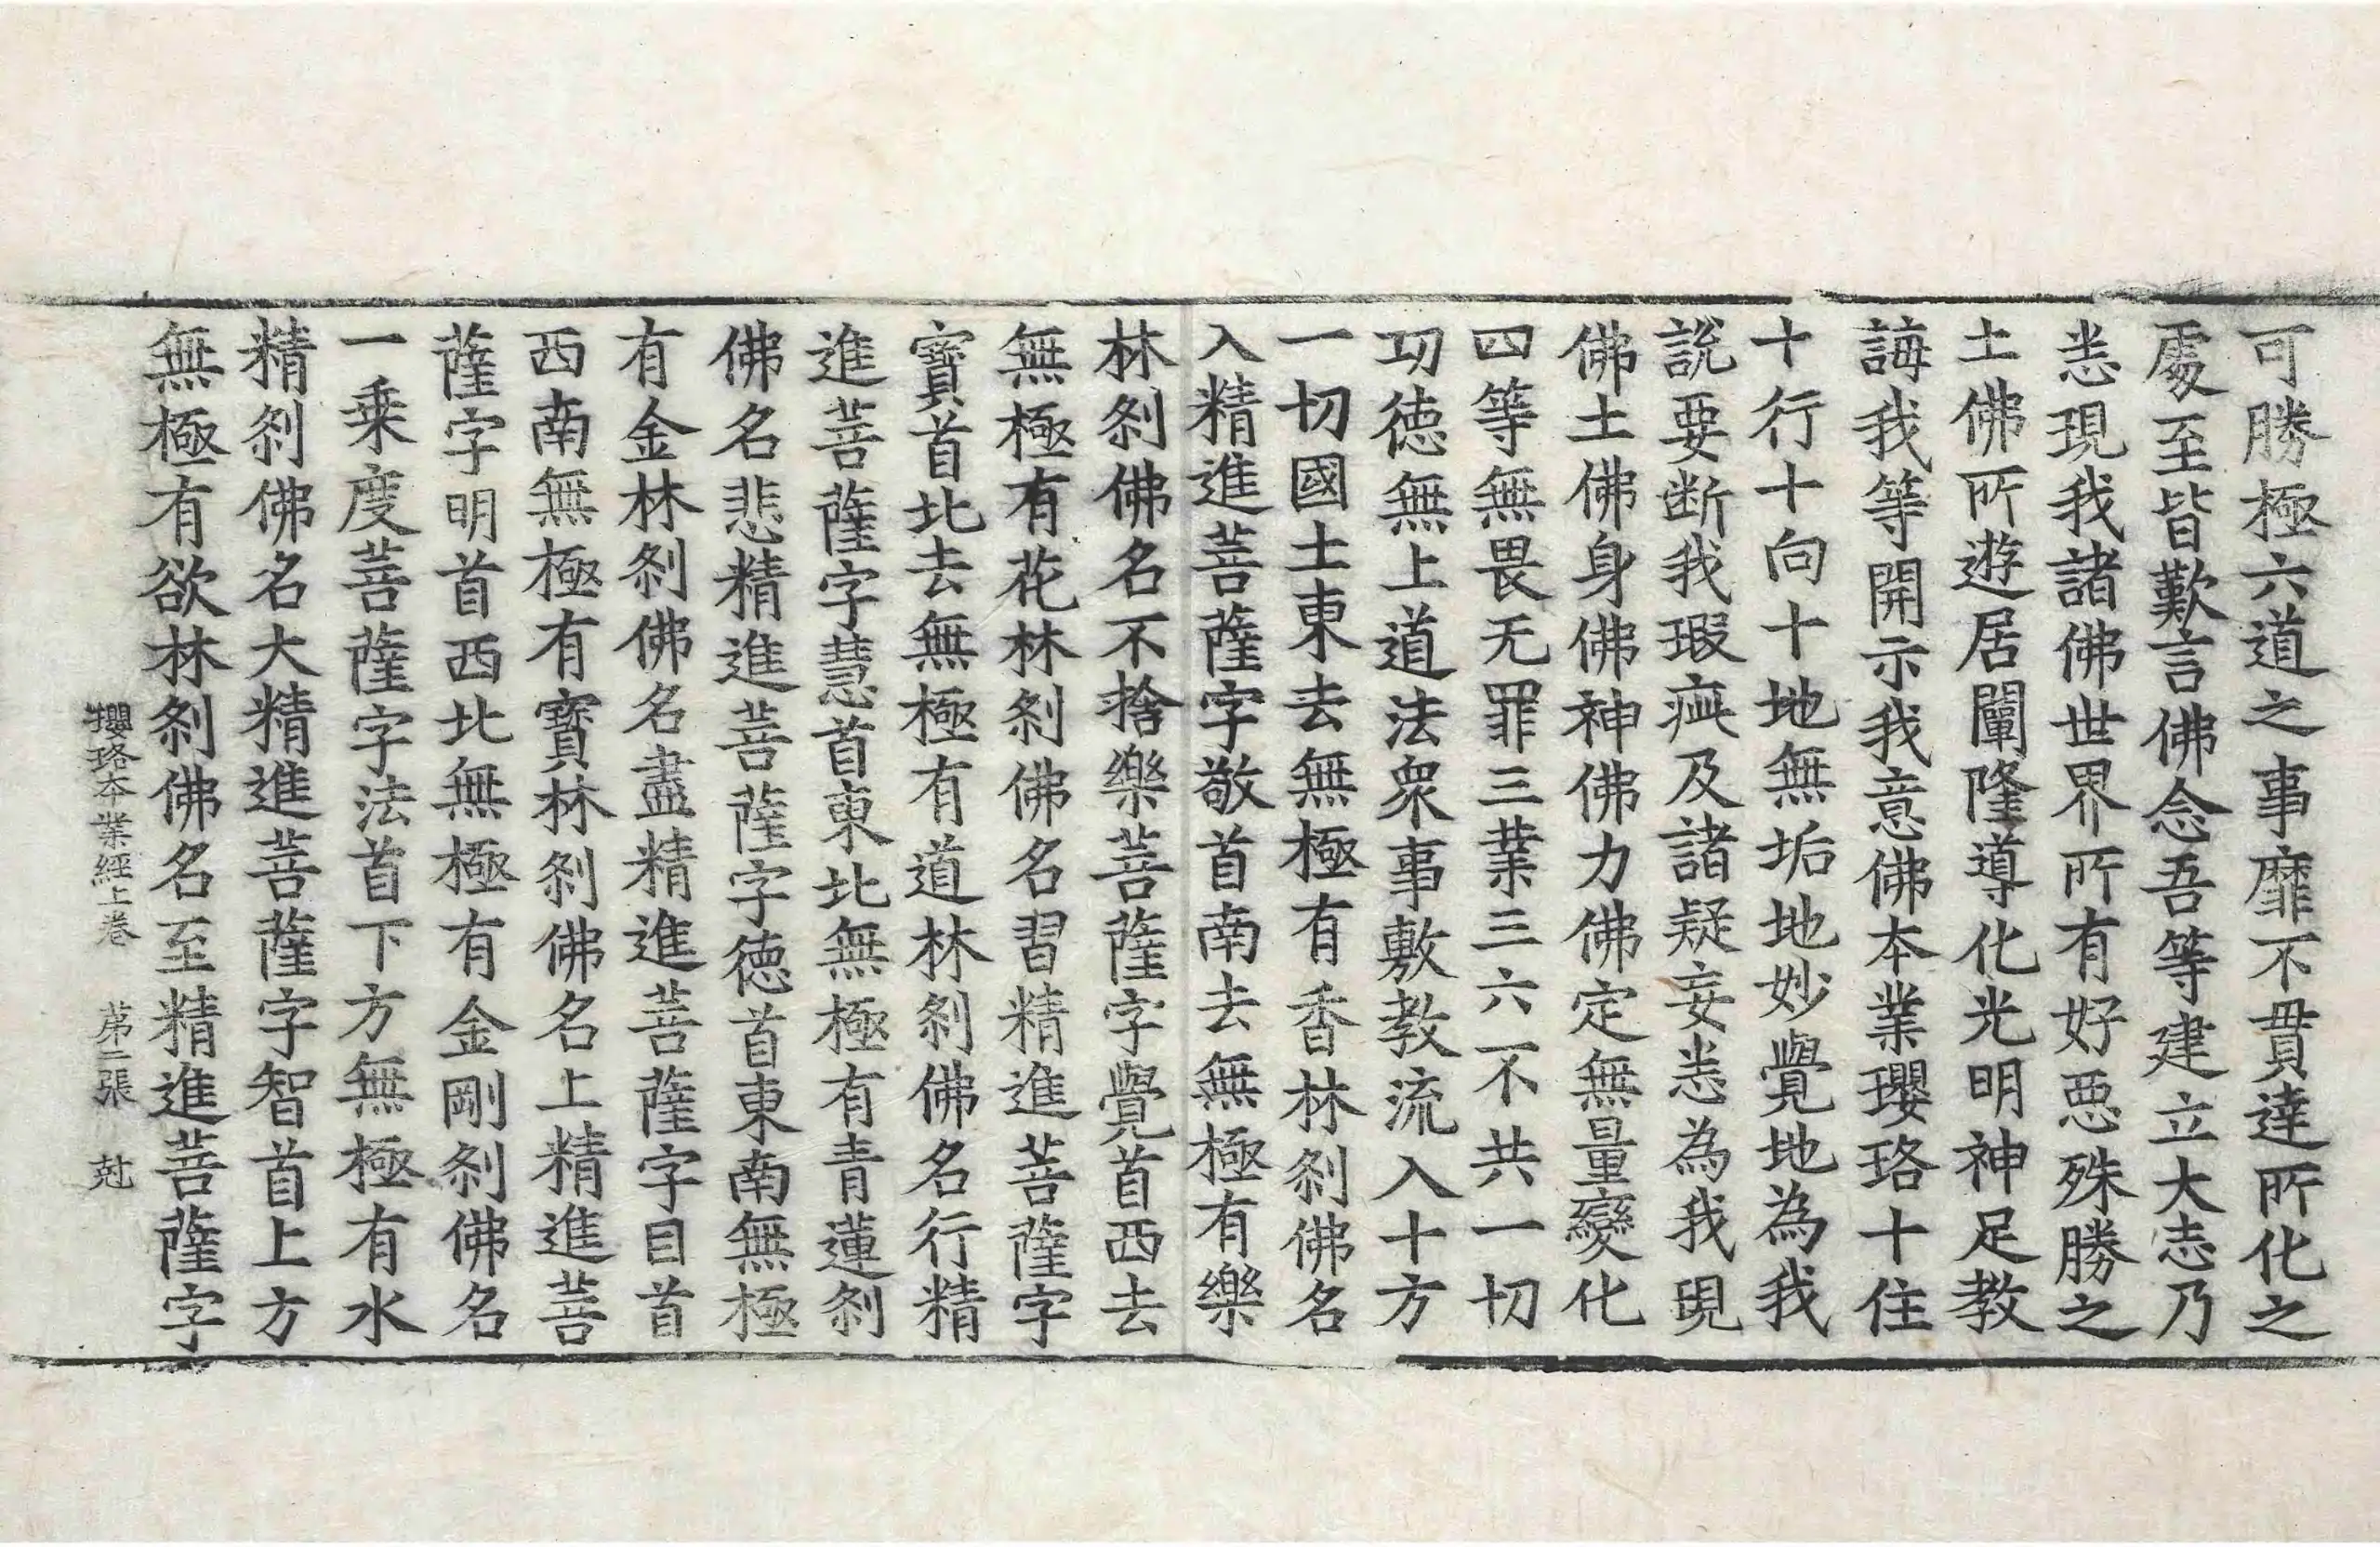 可勝極六道之事靡不貫達所化之
處至皆歎言佛念吾等建立大志乃
悉現我諸佛世界所有好惡殊勝之
土佛所遊居闡隆導化光明神足教
誨我等開示我意佛本業瓔珞十住
十行十向十地無垢地妙覺地為我
說要断我瑕疵及諸疑妄悉為我現
佛土佛身佛神佛力佛定無量變化
四等無畏无罪三業三六不共一切
功德無上道法衆事敷教流入十方
一切國土東去無極有香林刹佛名
入精進菩薩字敬首南去無極有樂
林刹佛名不捨樂菩薩字覺首西去
無極有花林刹佛名習精進菩薩字
寶首北去無極有道林刹佛名行精
進菩薩字慧首東北無極有青蓮刹
佛名悲精進菩薩字德首東南無極
有金林刹佛名盡精進菩薩字目首
西南無極有寶林刹佛名上精進菩
薩字明首西北無極有金剛刹佛名
一乗度菩薩字法首下方無極有水
精刹佛名大精進菩薩字智首上方
無極有欲林刹佛名至精進菩薩字
瓔珞本業經上卷 苐二張 尅